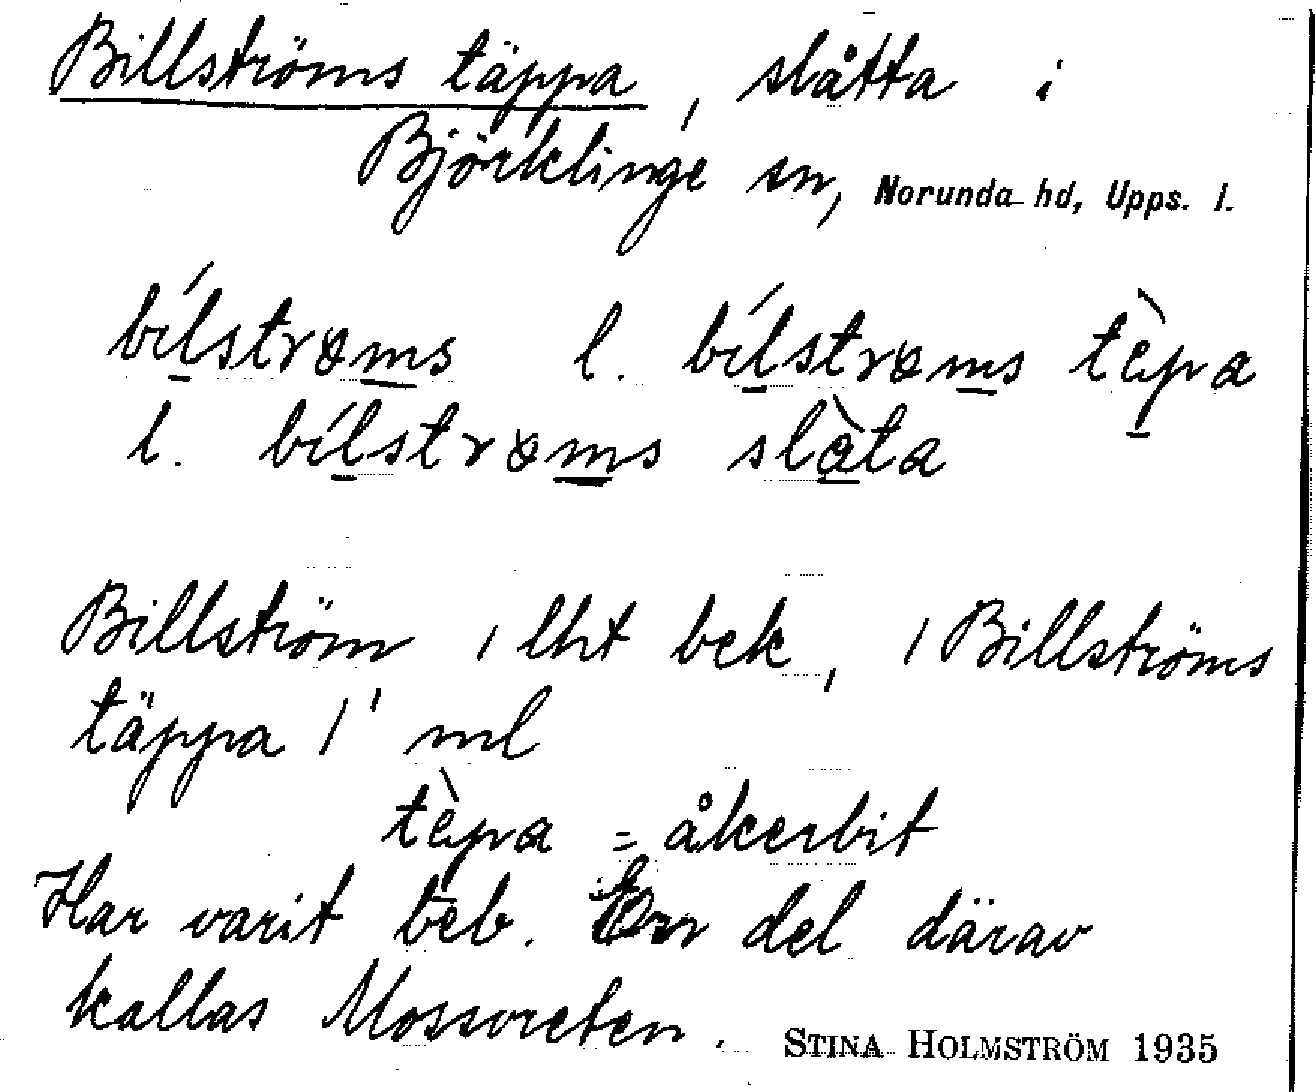 Billströms täppa, slåtta i
Björklinge sn, Norunda hd, Upps. l.
bílstrøms l. bílstrøms tɛ̀pa
l. bílstrøms slàta
Billström, lht bek, / Billströms
täppa /' ml
tɛ̀pa = åkerbit
Har varit beb. En del därav
kallas Mossvreten.
STINA HOLMSTRÖM 1935